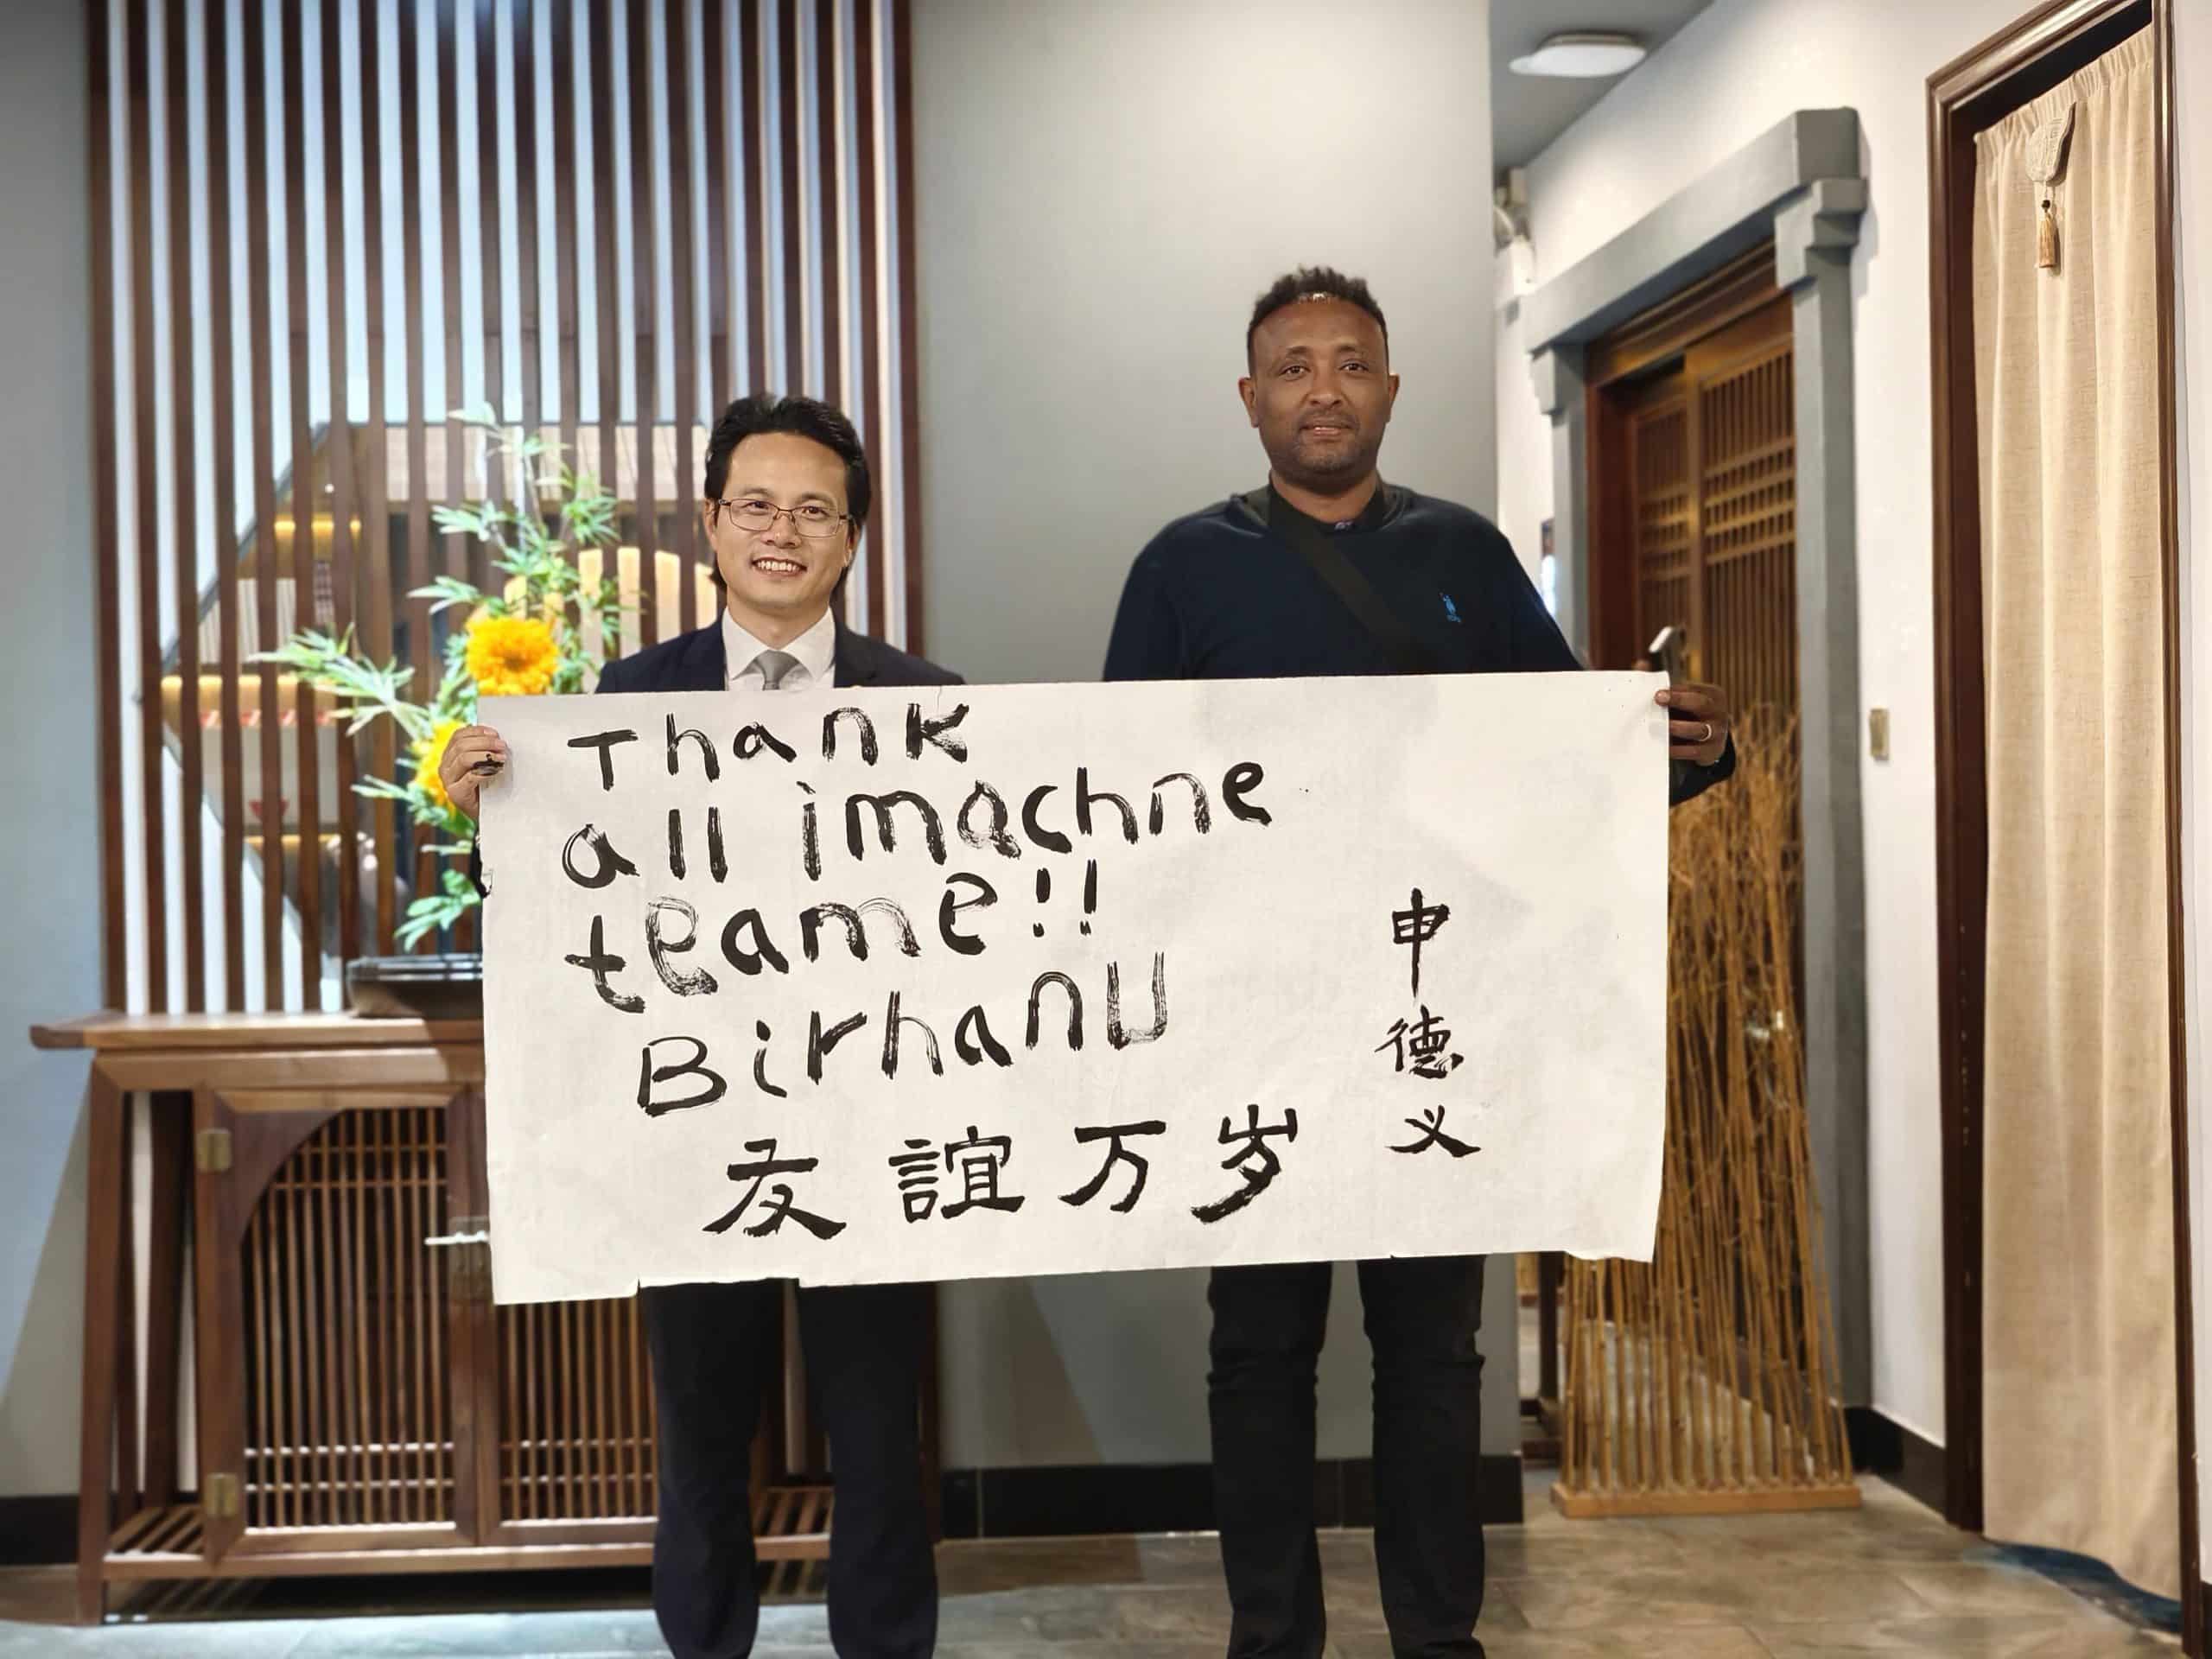 Thank
all imachne
teame!!
Birhanu
友誼万岁
申德义